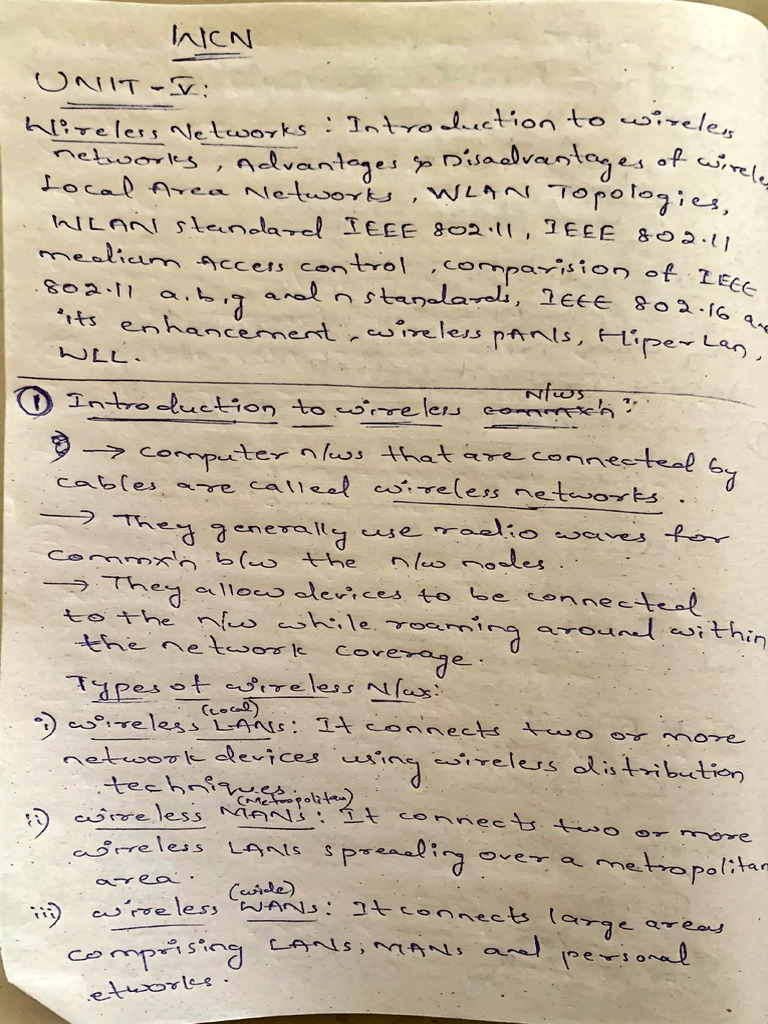 WCN
UNIT-V:
Wireless Networks: Introduction to wireless
networks, Advantages & Disadvantages of wireles
Local Area Networks, WLAN Topologies,
WLAN standard IEEE 802.11, IEEE 802.11
medium Access control, comparision of IEEE
802.11 a.b.g and n standards, IEEE 802.16 an
its enhancement, wireless PANs, HiperLan,
WLL.
① Introduction to wireless commx'n N/ws:
→ computer n/ws that are connected by
cables are called wireless networks.
→ They generally use radio waves for
commx'n b/w the n/w nodes.
→ They allow devices to be connected
to the n/w while roaming around within
the network coverage.
Types of wireless N/ws:
i) wireless (Local) LANs: It connects two or more
network devices using wireless distribution
techniques.
ii) wireless (Metropolitan) MANs: It connects two or more
wireless LANs spreading over a metropolitan
area.
iii) wireless (wide) WANs: It connects large areas
comprising LANs, MANs and personal
etworks.